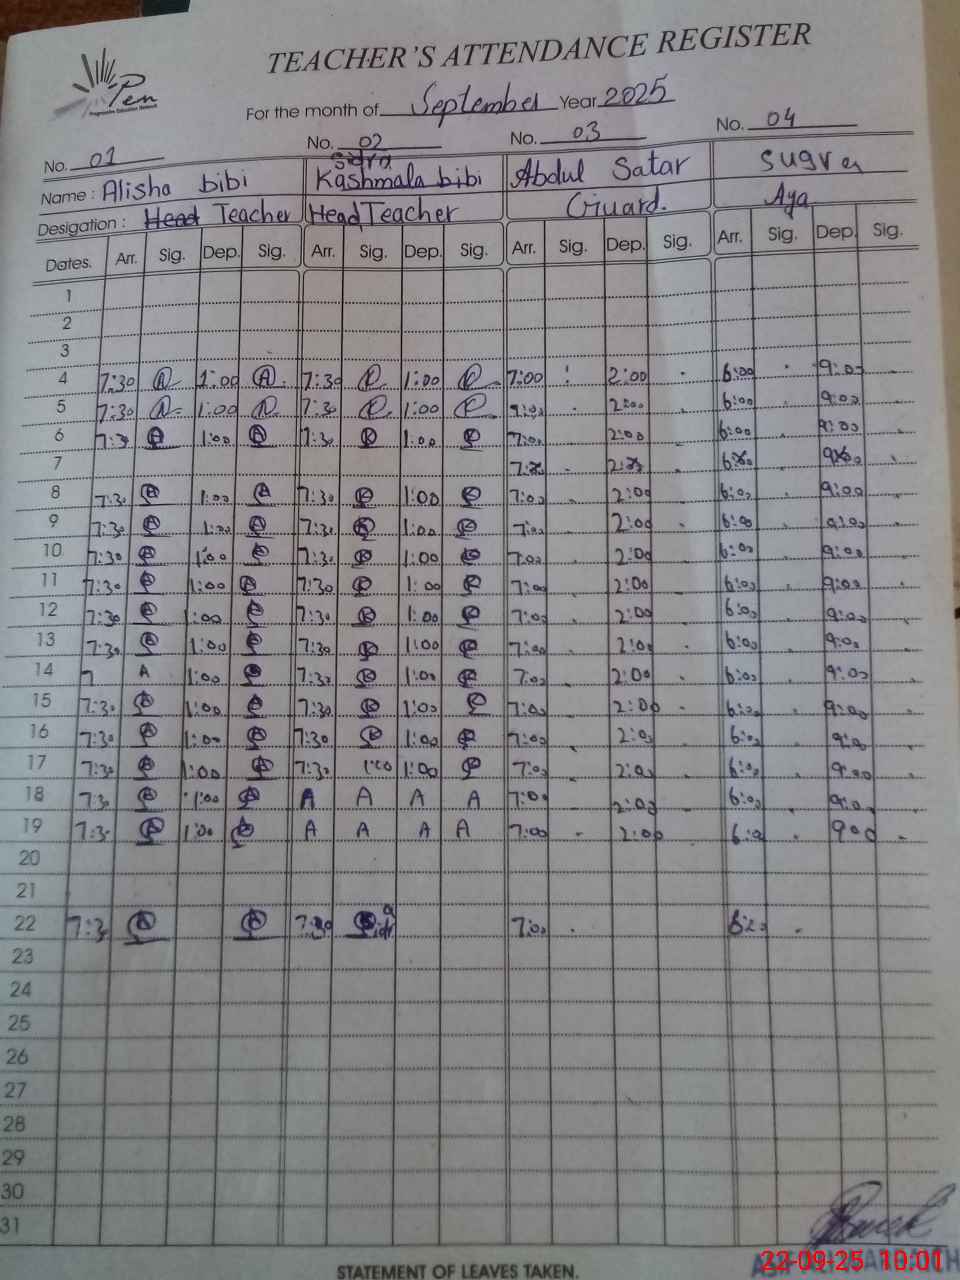 Pen
TEACHER'S ATTENDANCE REGISTER
For the month of September Year 2025
No. 01 No. 02 No. 03 No. 04
Sidra
Name : Alisha bibi Kashmala bibi Abdul Satar Sugra
Desigation : Head Teacher Head Teacher Guard. Aya
Dates. Arr. Sig. Dep. Sig. Arr. Sig. Dep. Sig. Arr. Sig. Dep. Sig. Arr. Sig. Dep. Sig.
1
2
3
4 7:30 1:00 7:30 1:00 7:00 2:00 6:00 9:00
5 7:30 1:00 7:30 1:00 2:00 6:00 9:00
6 7:3 1:00 7:3 1:00 7:00 2:00 6:00 9:00
7
8 7:30 1:00 7:30 1:00 7:00 2:00 6:00 9:00
9 7:30 1:00 7:30 1:00 7:00 2:00 6:00 9:00
10 7:30 1:00 7:30 1:00 7:00 2:00 6:00 9:00
11 7:30 1:00 7:30 1:00 7:00 2:00 6:00 9:00
12 7:30 1:00 7:30 1:00 7:00 2:00 6:00 9:00
13 7:30 1:00 7:30 1:00 7:00 2:00 6:00 9:00
14 7 A 1:00 7:30 1:00 7:00 2:00 6:00 9:00
15 7:30 1:00 7:30 1:00 7:00 2:00 6:00 9:00
16 7:30 1:00 7:30 1:00 7:00 2:00 6:00 9:00
17 7:30 1:00 7:30 1:00 1:00 7:00 2:00 6:00 9:00
18 7:3 1:00 A A A A 7:00 2:00 6:00 9:00
19 7:3 1:00 A A A A 7:00 2:00 6:0 900
20
21
22 7:3 7:30 7:00
23
24
25
26
27
28
29
30
31
STATEMENT OF LEAVES TAKEN.
22-09-25 10:01